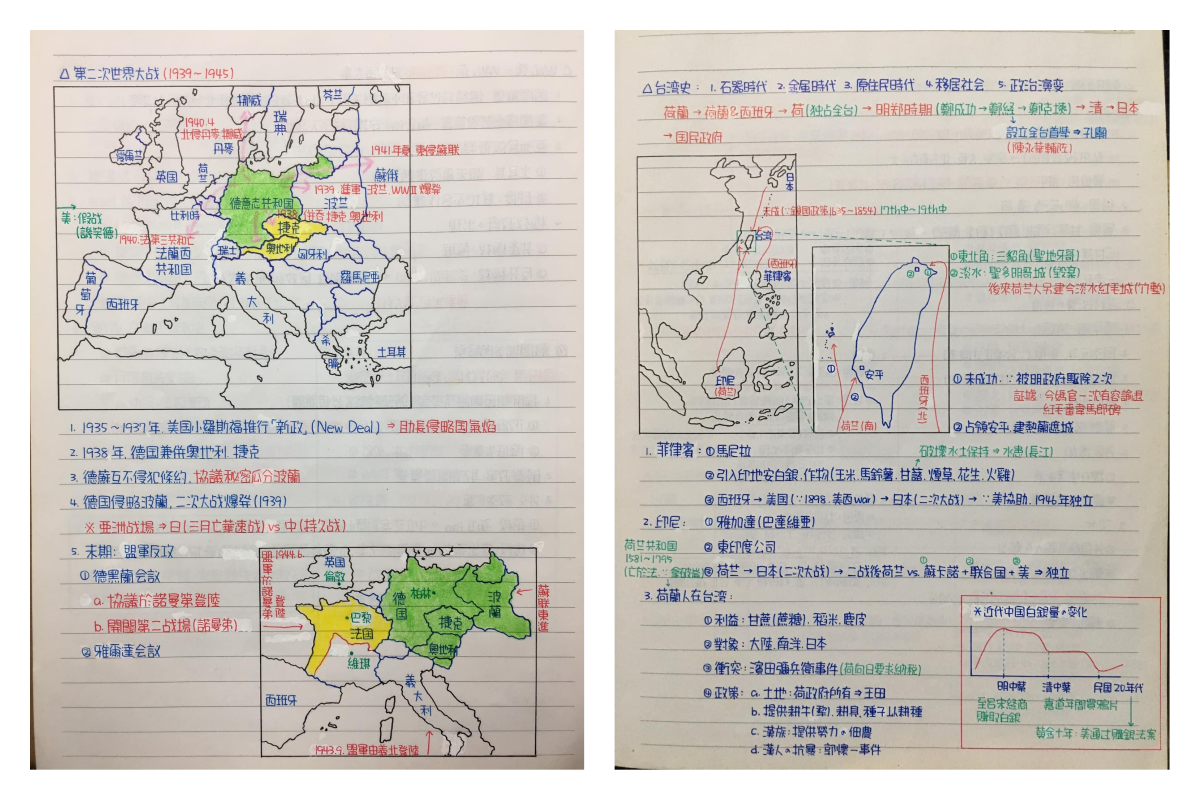 △ 第二次世界大战 (1939~1945)
挪威
芬兰
瑞典
1940.4
北侵丹麥.挪威
丹麥
愛爾兰
英国
荷兰
1941年夏.東侵蘇联
蘇俄
1939.進軍 波兰 WWII 爆発
波兰
德意志共和国
比利時
美:假战
(說笑德)
1940.法第三共和亡
法蘭西
共和国
捷克
瑞士
奧地利
匈牙利
羅馬尼亞
義大利
葡萄牙
西班牙
希臘
土耳其
1. 1935~1937年.美国小羅斯福推行「新政」(New Deal) ⇒ 助長侵略国氣焰
2. 1938年.德国兼併奧地利.捷克
3. 德蘇互不侵犯條約.協議秘密瓜分波蘭
4. 德国侵略波蘭,二次大战爆発(1939)
※ 亜洲战場 ⇒ 日(三月亡華速战) vs 中(持久战)
5. 末期: 盟軍反攻
① 德黑蘭会議
a. 協議於諾曼第登陸
b. 開闢第二战場(諾曼弟)
② 雅爾達会議
1944.6.
盟軍於諾曼第登陸
英国
倫敦
德国
柏林
波蘭
蘇联東進
巴黎
法国
捷克
奧地利
維琪
義大利
西班牙
1943.9.盟軍由義北登陸
△台湾史: 1. 石器時代 2. 金属時代 3. 原住民時代 4. 移居社会 5. 政治演变
荷蘭 → 荷蘭&西班牙 → 荷(独占全台) → 明郑時期 (鄭成功→鄭經→鄭克塽) → 清 → 日本
→ 国民政府
設立全台首學 ⇒ 孔廟
(陳永華輔佐)
日本
未成(∵鎖國政策1635~1854) 17th中~19th中
台湾
(西班牙)
菲律賓
印尼
(荷兰)
①東北角: 三貂角(聖地牙哥)
②淡水: 聖多明哥城 (毀棄)
後來荷兰人另建今淡水紅毛城(竹塹)
安平
西班牙(北)
荷兰(南)
① 未成功.∵被明政府驅除2次
証據: 今媽宮-沈有容諭退
紅毛番韋麻郎碑
② 占領安平.建熱蘭遮城
1. 菲律賓: ① 馬尼拉
破壞水土保持 ⇒ 水患(長江)
② 引入印地安白銀.作物(玉米.馬鈴薯.甘藷.煙草.花生.火雞)
③ 西班牙 → 美国 (∵1898.美西war) → 日本(二次大战) → ∵美協助.1946年独立
2. 印尼: ① 雅加達(巴達維亜)
② 東印度公司
荷兰共和国
1581~1795
③ 荷兰 → 日本(二次大战) → 二战後荷兰 vs. 蘇卡諾+联合国+美 ⇒ 独立
3. 荷蘭人在台湾:
① 利益: 甘蔗(蔗糖).稻米.鹿皮
② 對象: 大陸.南洋.日本
③ 衝突: 濱田彌兵衛事件(荷向日要求納稅)
④ 政策: a. 土地: 荷政府所有 ⇒ 王田
b. 提供耕牛(犁).耕具.種子以耕種
c. 漢族: 提供勞力の佃農
d. 漢人の抗暴: 郭懷一事件
※近代中国白銀量の变化
明中葉
清中葉
民国20年代
嘉道年間買鴉片
黄金十年: 美通过購銀法案